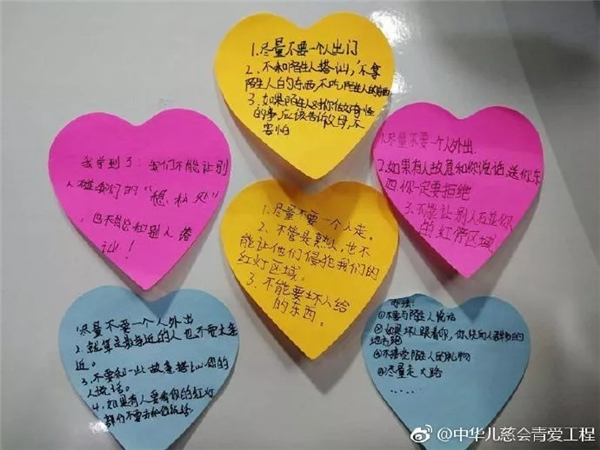 1.尽量不要一个人出门
2、不和陌生人搭讪,不拿
陌生人的东西,不吃陌生人的东西
3、如果陌生人对你做奇怪
的事,应该告诉父母,不
害怕
我学到了:我们不能让别
人碰我们的“隐私处”
,也不能和别人搭
讪!
1.尽量不要一个人外出.
2.如果有人故意和你说话,送你东
西你一定要拒绝
3.不能让别人触碰你
的红灯区域
1.尽量不要一个人走。
2、不管是熟人,也不
能让他们侵犯我们的
红灯区域。
3.不能要坏人给
的东西。
尽量不要一个人外出
2.就算是亲近的人也不要太走
近。
3.不要和一些故意搭讪你的
人说话。
4.如果有人要看你的红灯
办法:
①不要与陌生人说话
②如果坏人跟着你,你往向人群多的
地方跑
③不接受陌生人的礼物
④尽量走大路
……
@中华儿慈会青爱工程